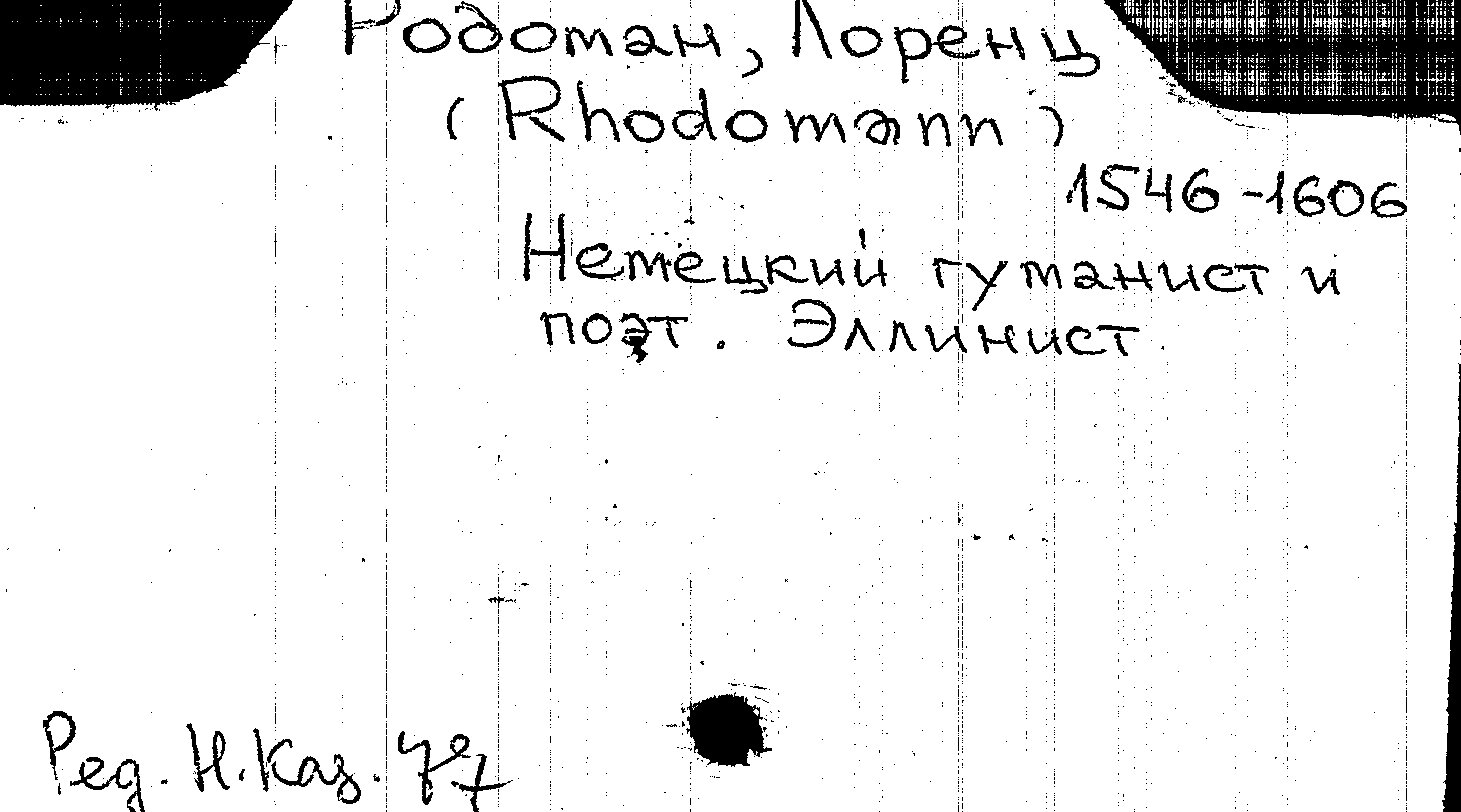 Родоман, Лоренц
(Rhodomann)
1546-1606
Немецкий гуманист и
поэт. Эллинист
Ред. Н. Каз.